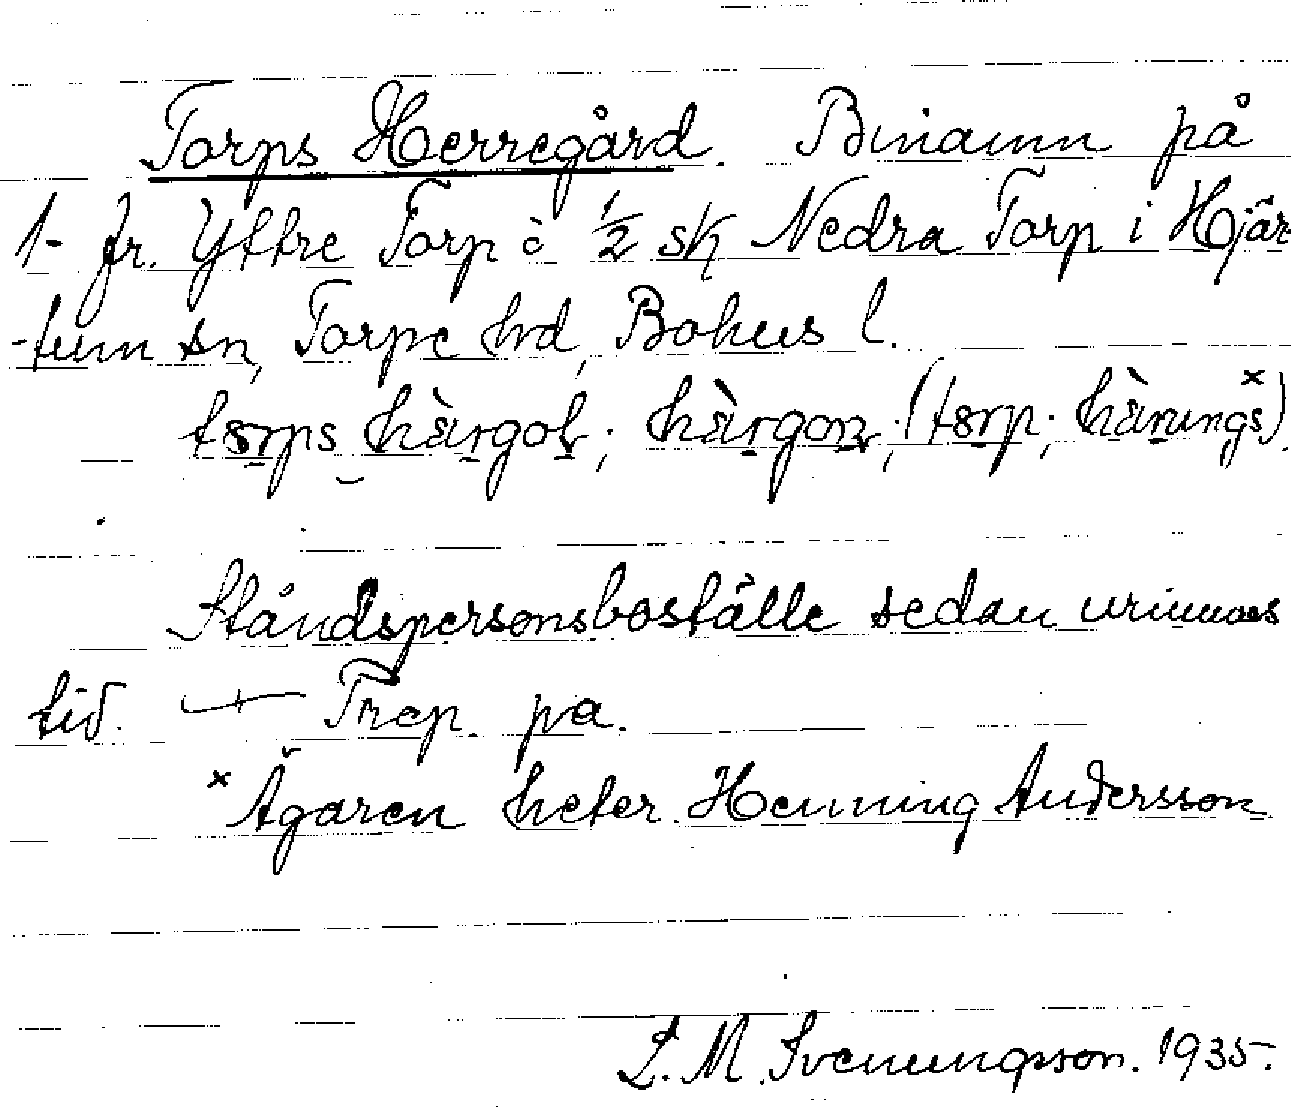 Torps Herregård. Binamn på
1- fr. Yttre Torp o ½ sk Nedra Torp i Hjär
-tum sn, Torpe hd, Bohus l.
Ståndspersonsboställe sedan urminnes
tid. — Trop. pa.
× Ägaren heter Henning Andersson
L. M. Svenungsson. 1935.